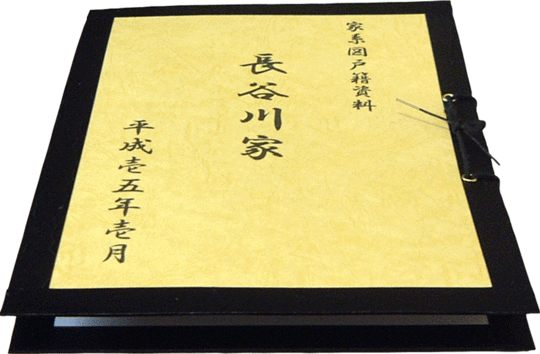 家系図戸籍資料
長谷川家
平成壱五年壱月